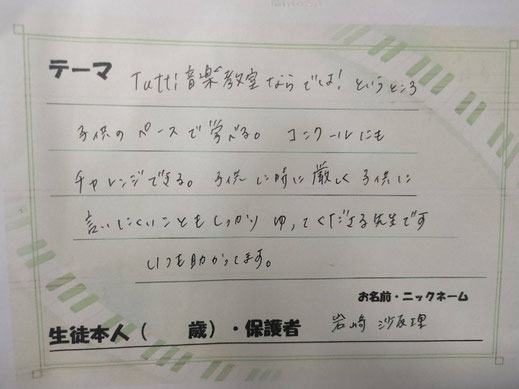 テーマ Tutti音楽教室ならでは！というところ
子供のペースで学べる。コンクールにも
チャレンジできる。子供に時に厳しく子供に
言いにくいこともしっかりゆってくださる先生です
いつも助かってます。
お名前・ニックネーム
生徒本人（　　歳）・保護者 岩崎 沙友理